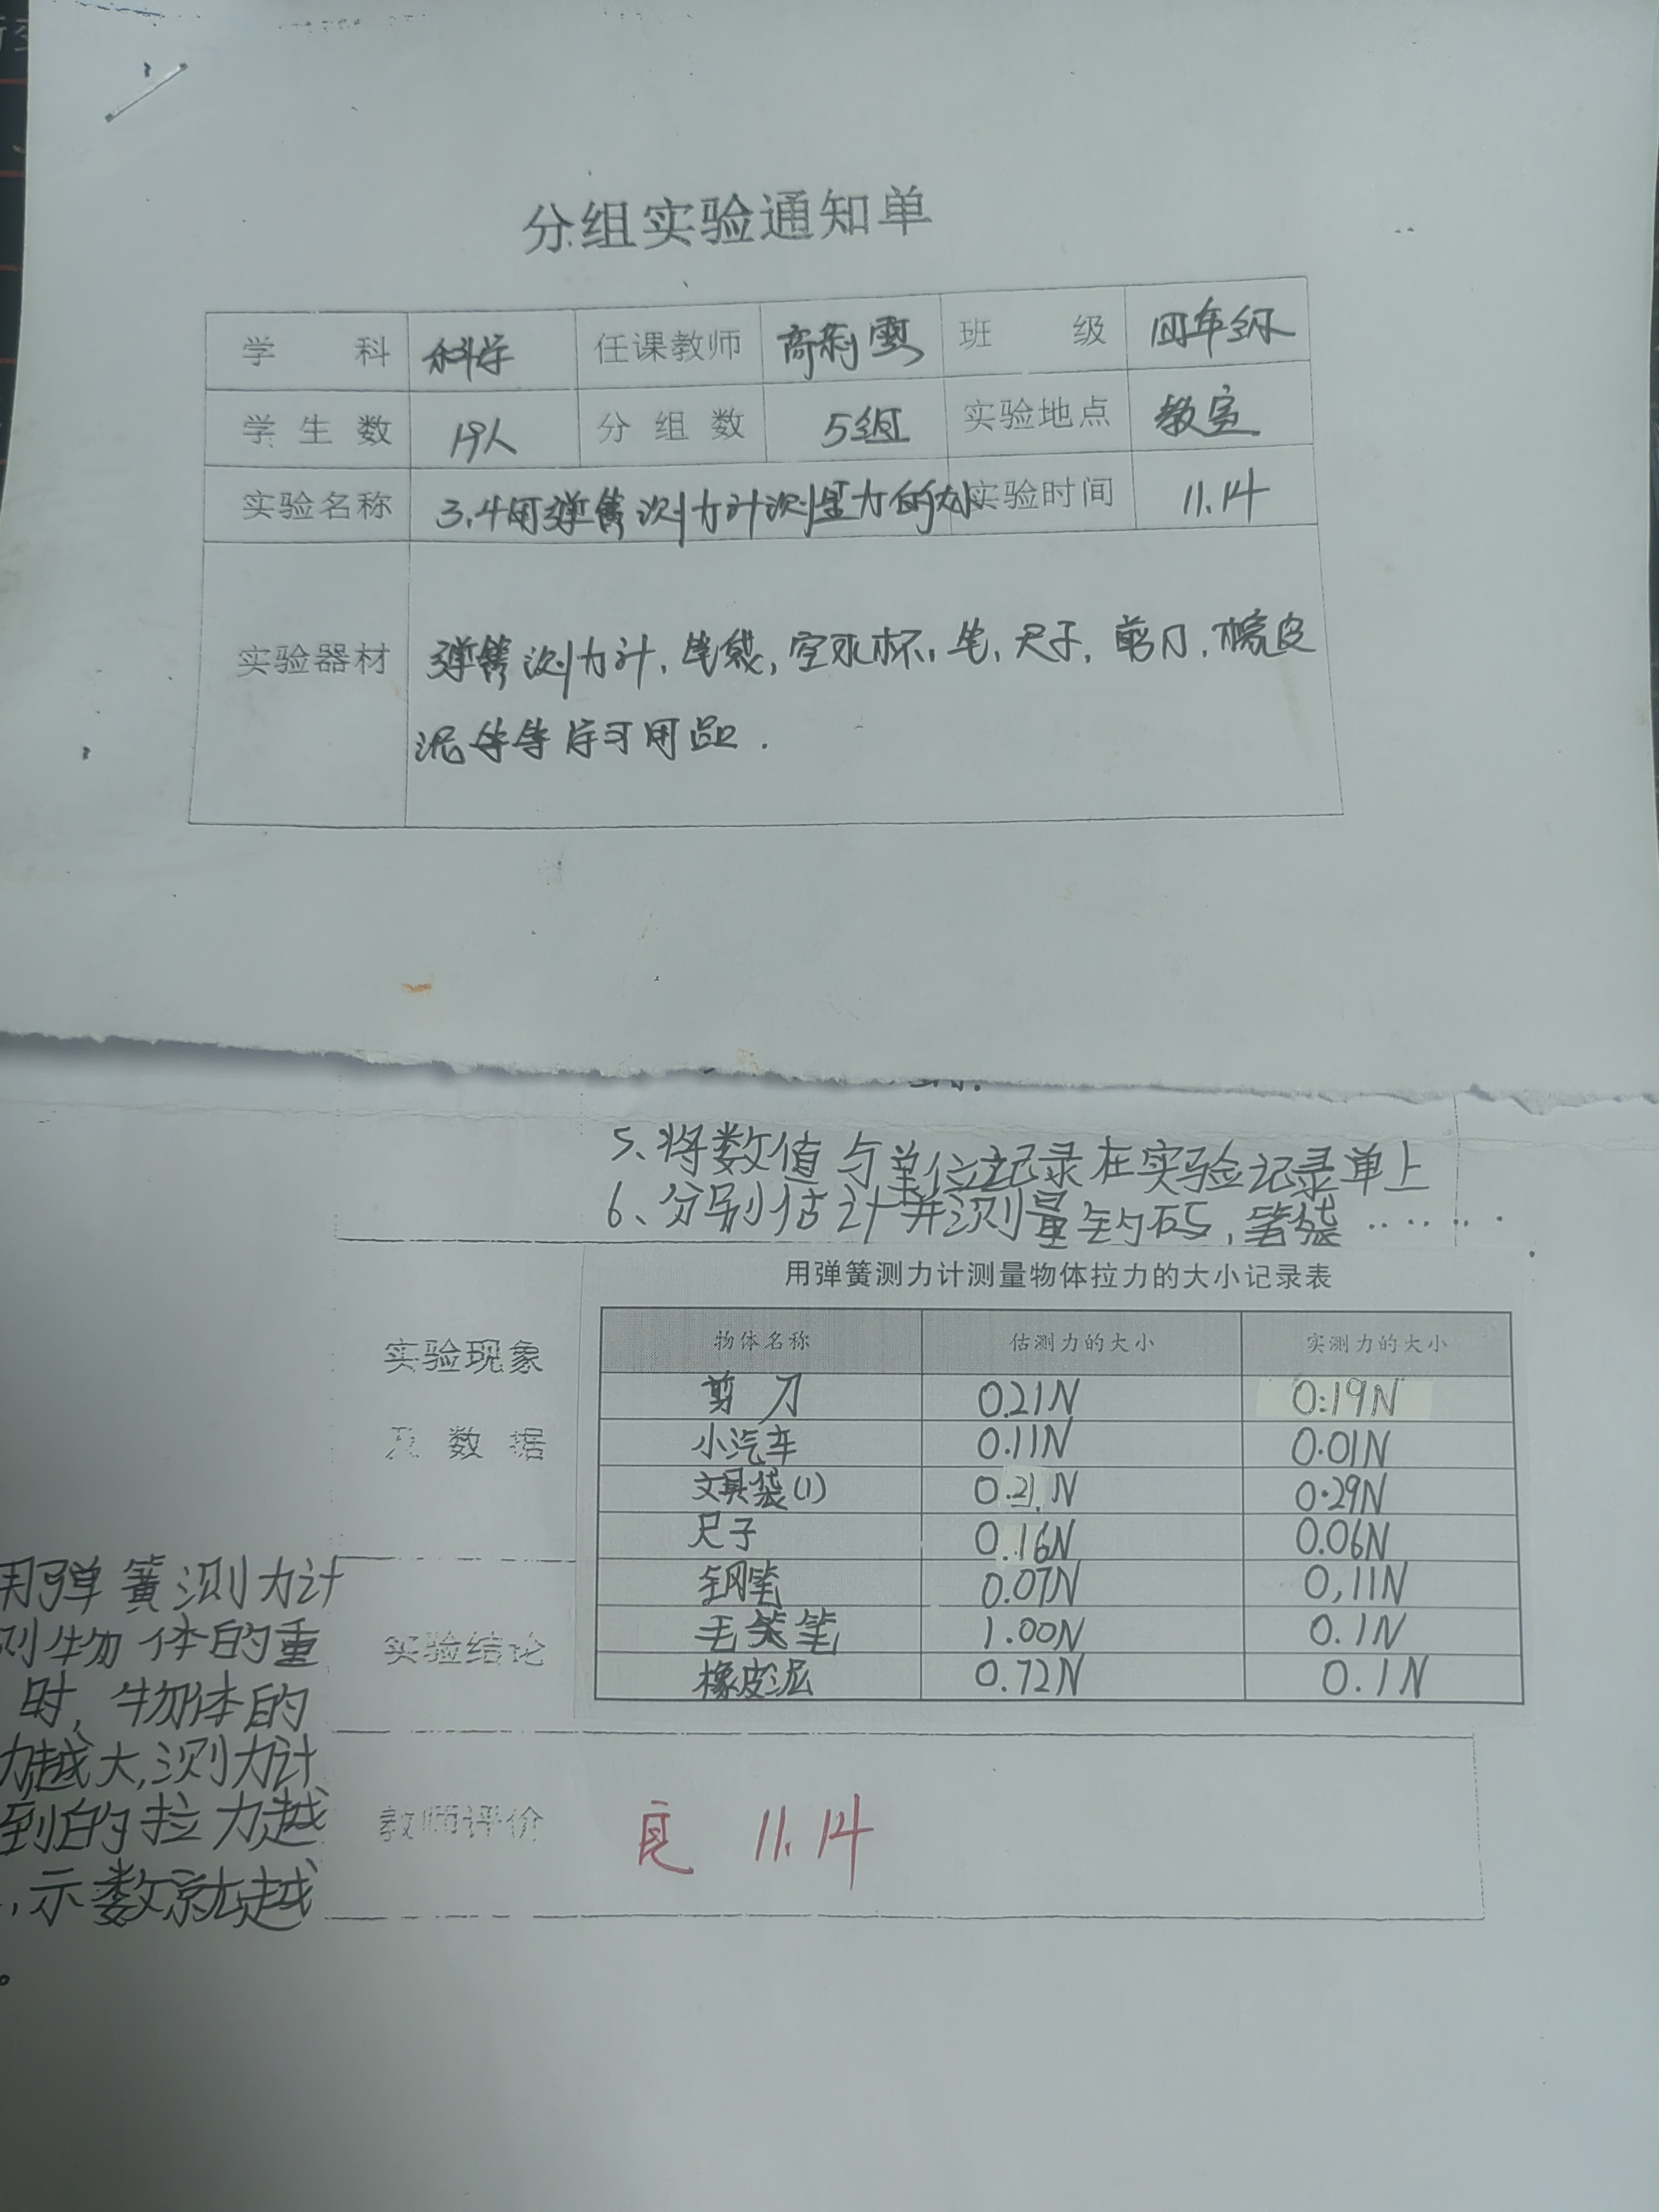 分组实验通知单
学 科 科学 任课教师 班 级 四年级
学生数 19人 分组数 5组 实验地点 教室
实验名称 3.4用弹簧测力计测量力的大小 实验时间 11.14
实验器材 弹簧测力计,笔袋,空水杯,笔,尺子,剪刀,橡皮
泥等等学习用品.
5、将数值与单位记录在实验记录单上
6、分别估计并测量钩码,笔袋·······
用弹簧测力计测量物体拉力的大小记录表
实验现象
及数据
物体名称 估测力的大小 实测力的大小
剪刀 0.21N 0.19N
小汽车 0.11N 0.01N
文具袋(1) 0.21N 0.29N
尺子 0.16N 0.06N
钢笔 0.07N 0,11N
毛笔 1.00N 0.1N
橡皮泥 0.72N 0.1N
用弹簧测力计
测物体的重
时,物体的
力越大,测力计
到的拉力越
,示数就越
。
实验结论
教师评价 良 11.14